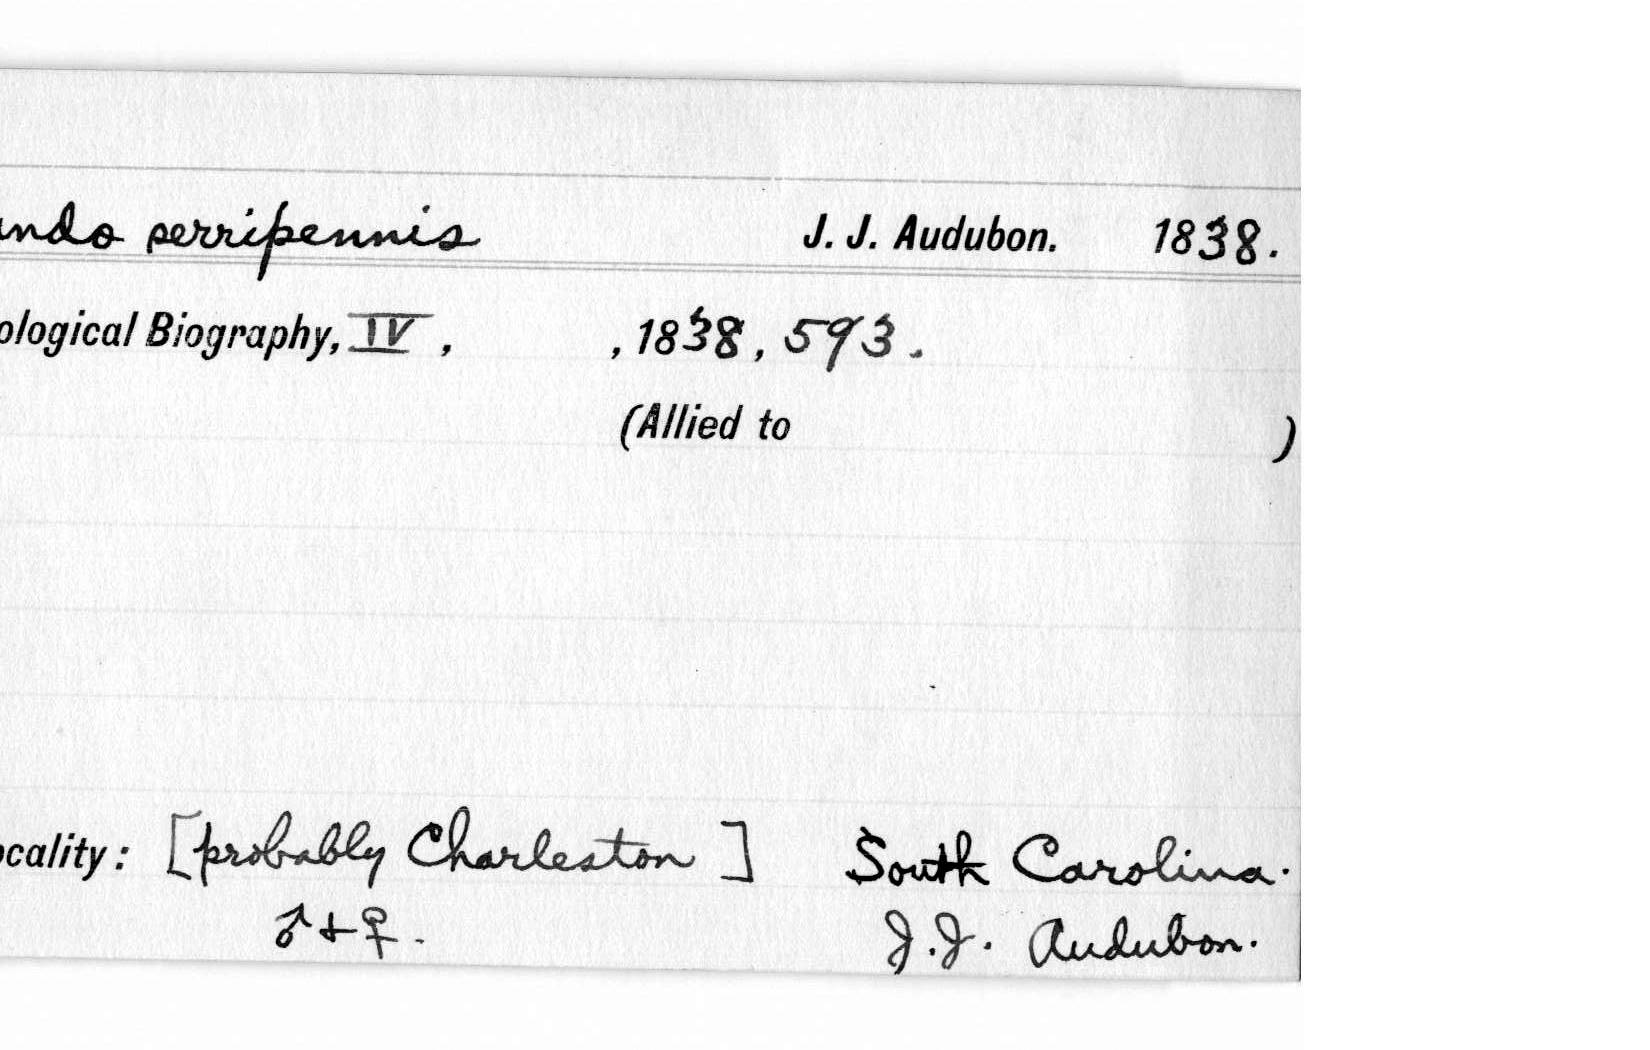 undo serripennis J. J. Audubon. 1838.
ological Biography, IV , , 1838, 593.
(Allied to )
ocality: [probably Charleston] South Carolina.
♂ + ♀. J. J. Audubon.